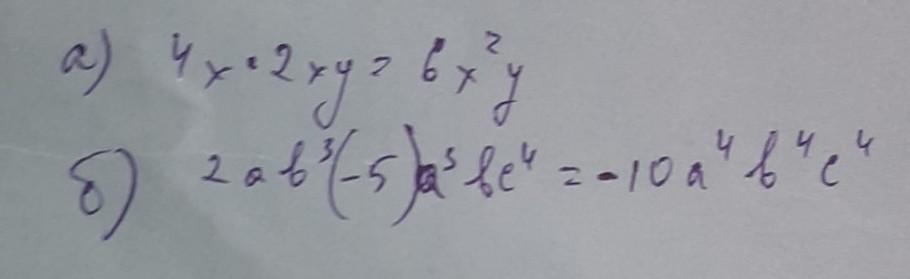 а) 4x·2xy = 6x²y
б) 2ab³(-5)a³bc⁴ = -10a⁴b⁴c⁴